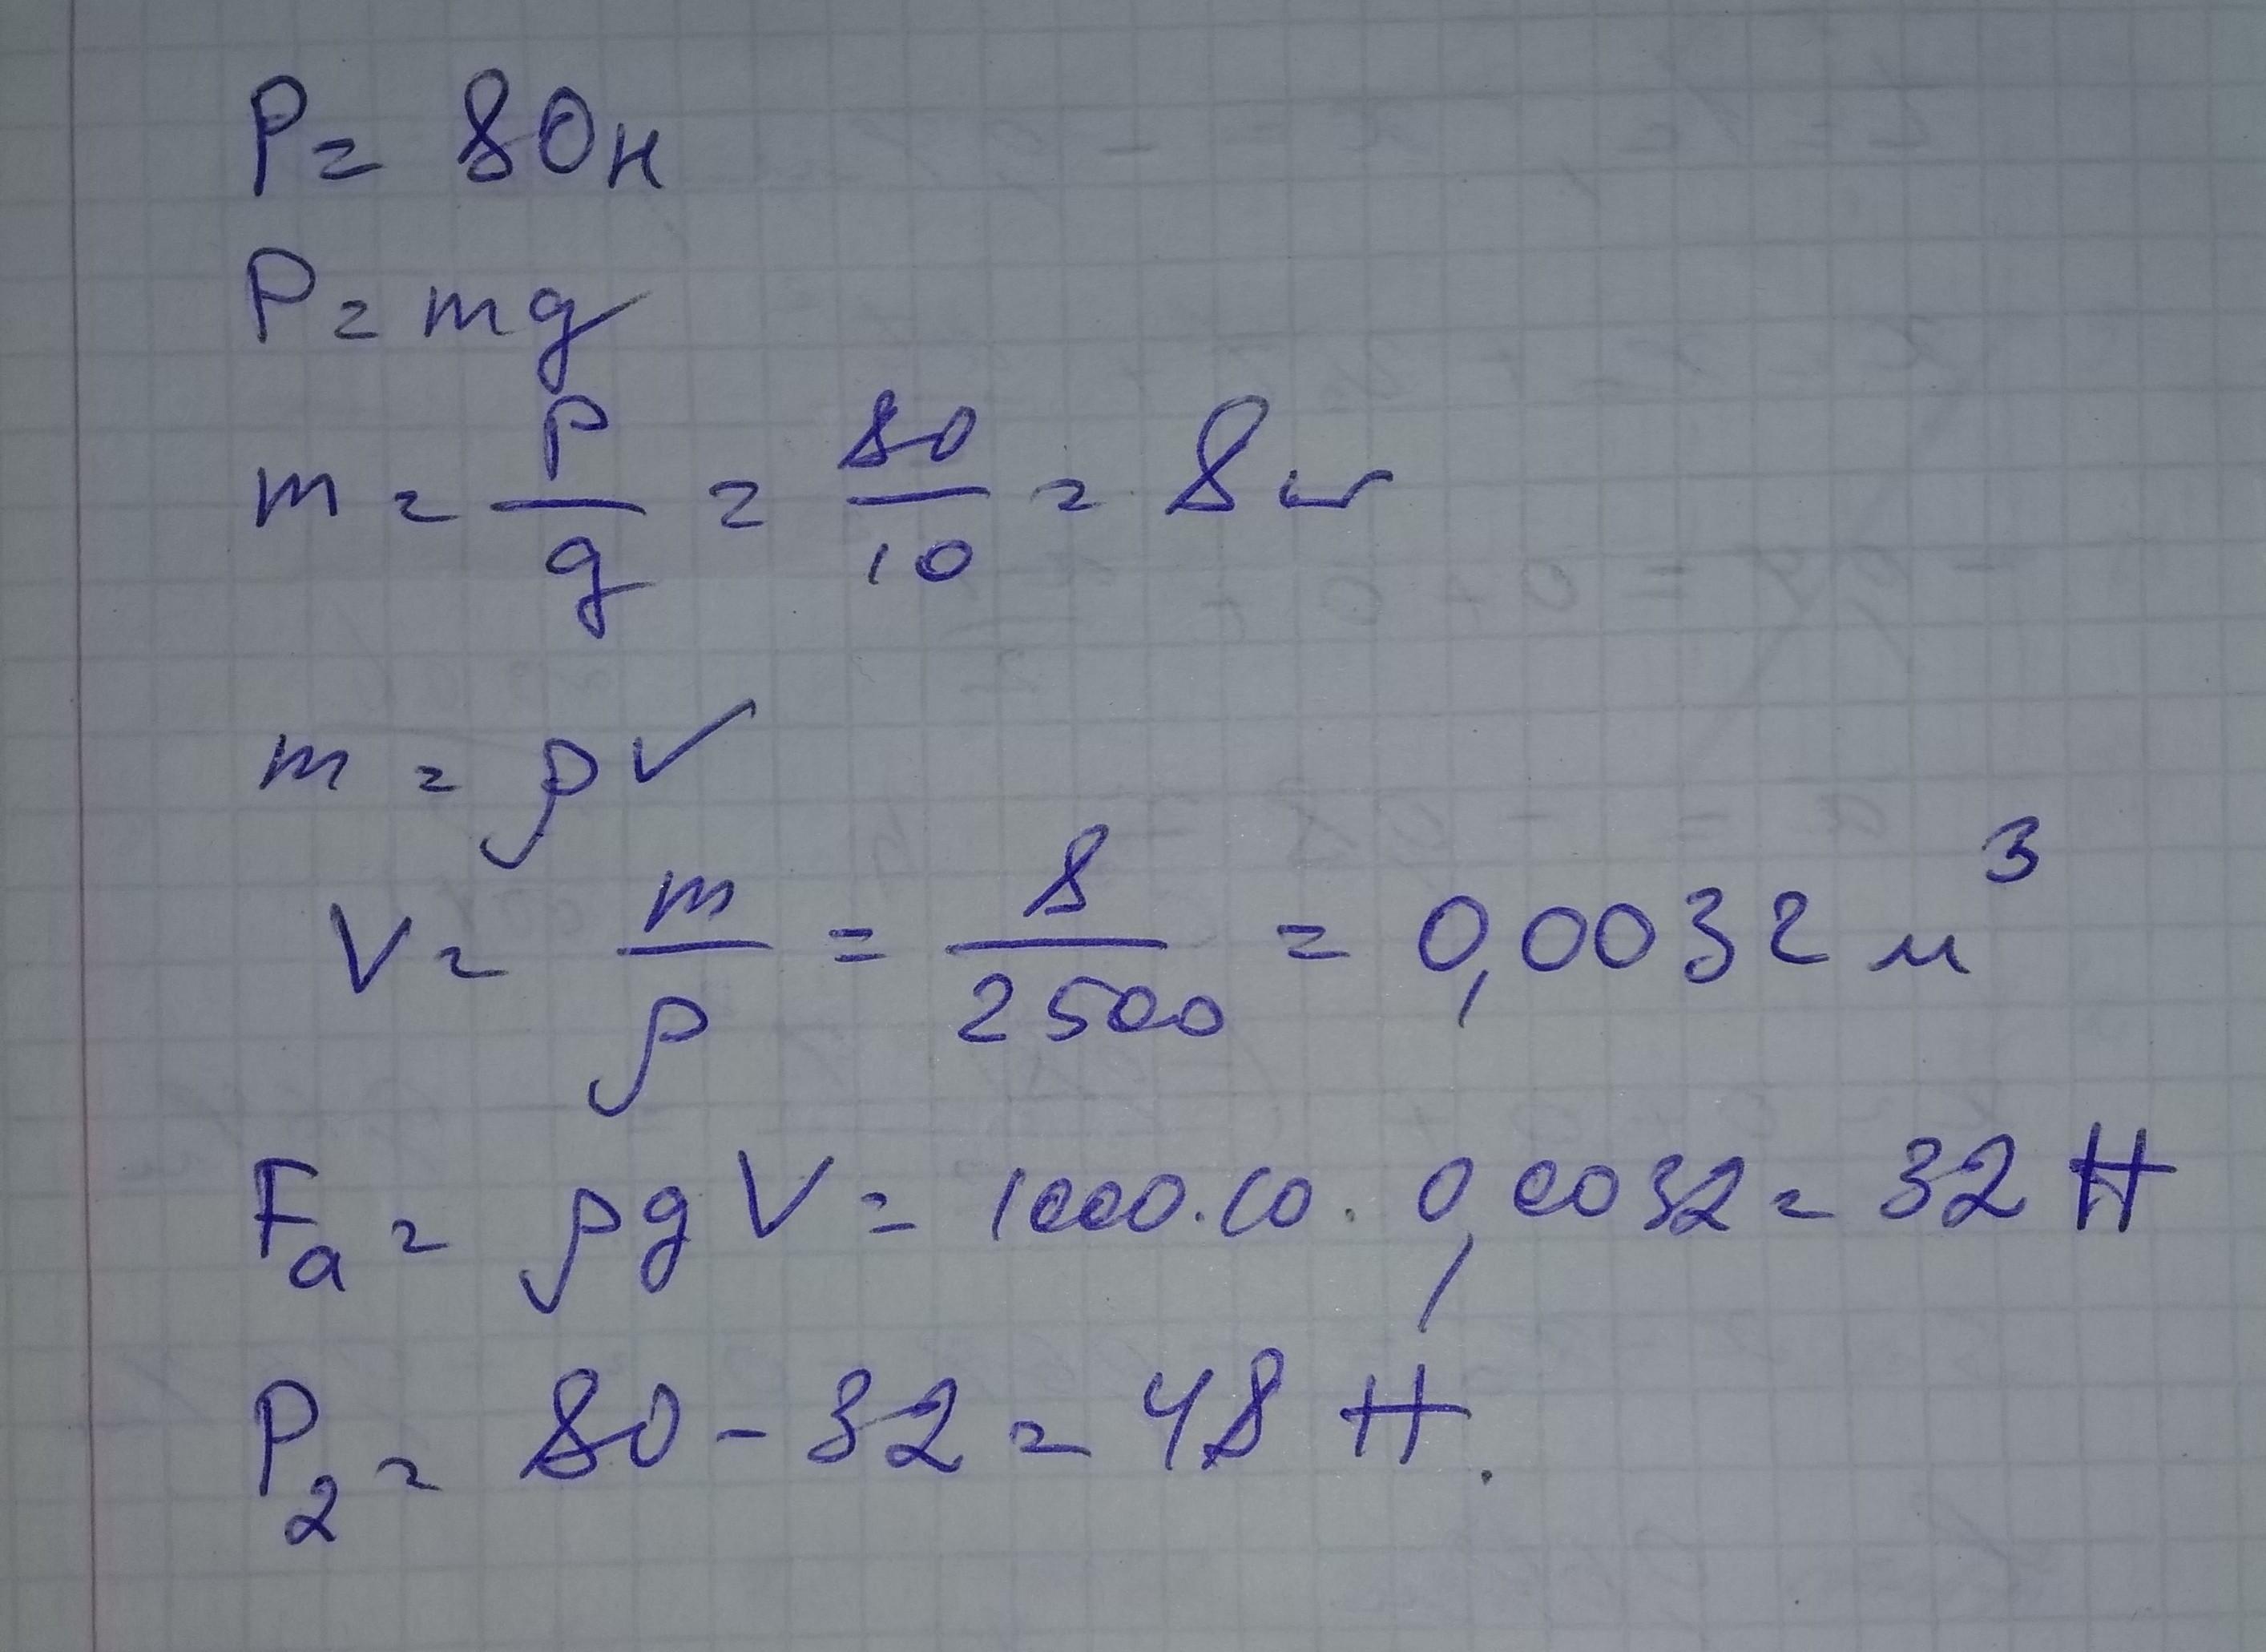 P = 80н
P = mg
m = P/g = 80/10 = 8 кг
m = ρV
V = m/ρ = 8/2500 = 0,0032 м³
Fa = ρgV = 1000·10·0,0032 = 32 Н
P₂ = 80 - 32 = 48 Н.